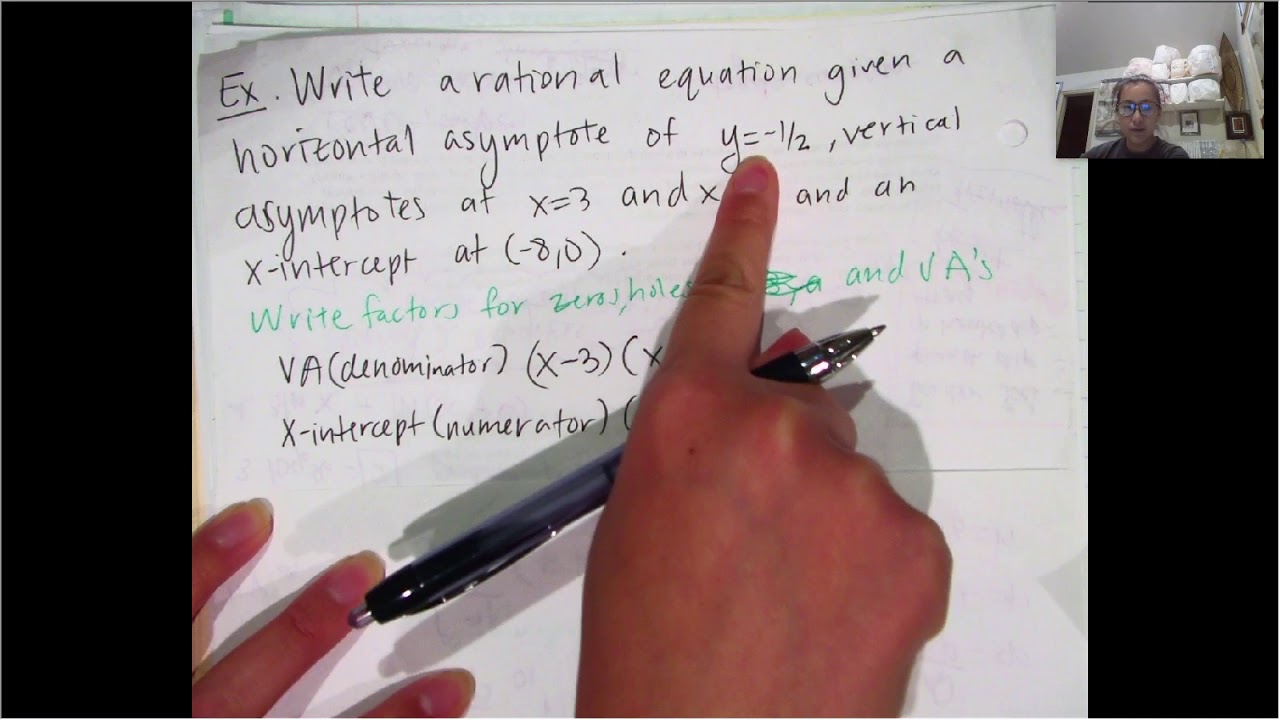 Ex. Write a rational equation given a
horizontal asymptote of y=-1/2, vertical
asymptotes at x=3 and x and an
x-intercept at (-8,0).
Write factors for zeros, holes and VA's
VA(denominator) (x-3)(x
x-intercept(numerator)(